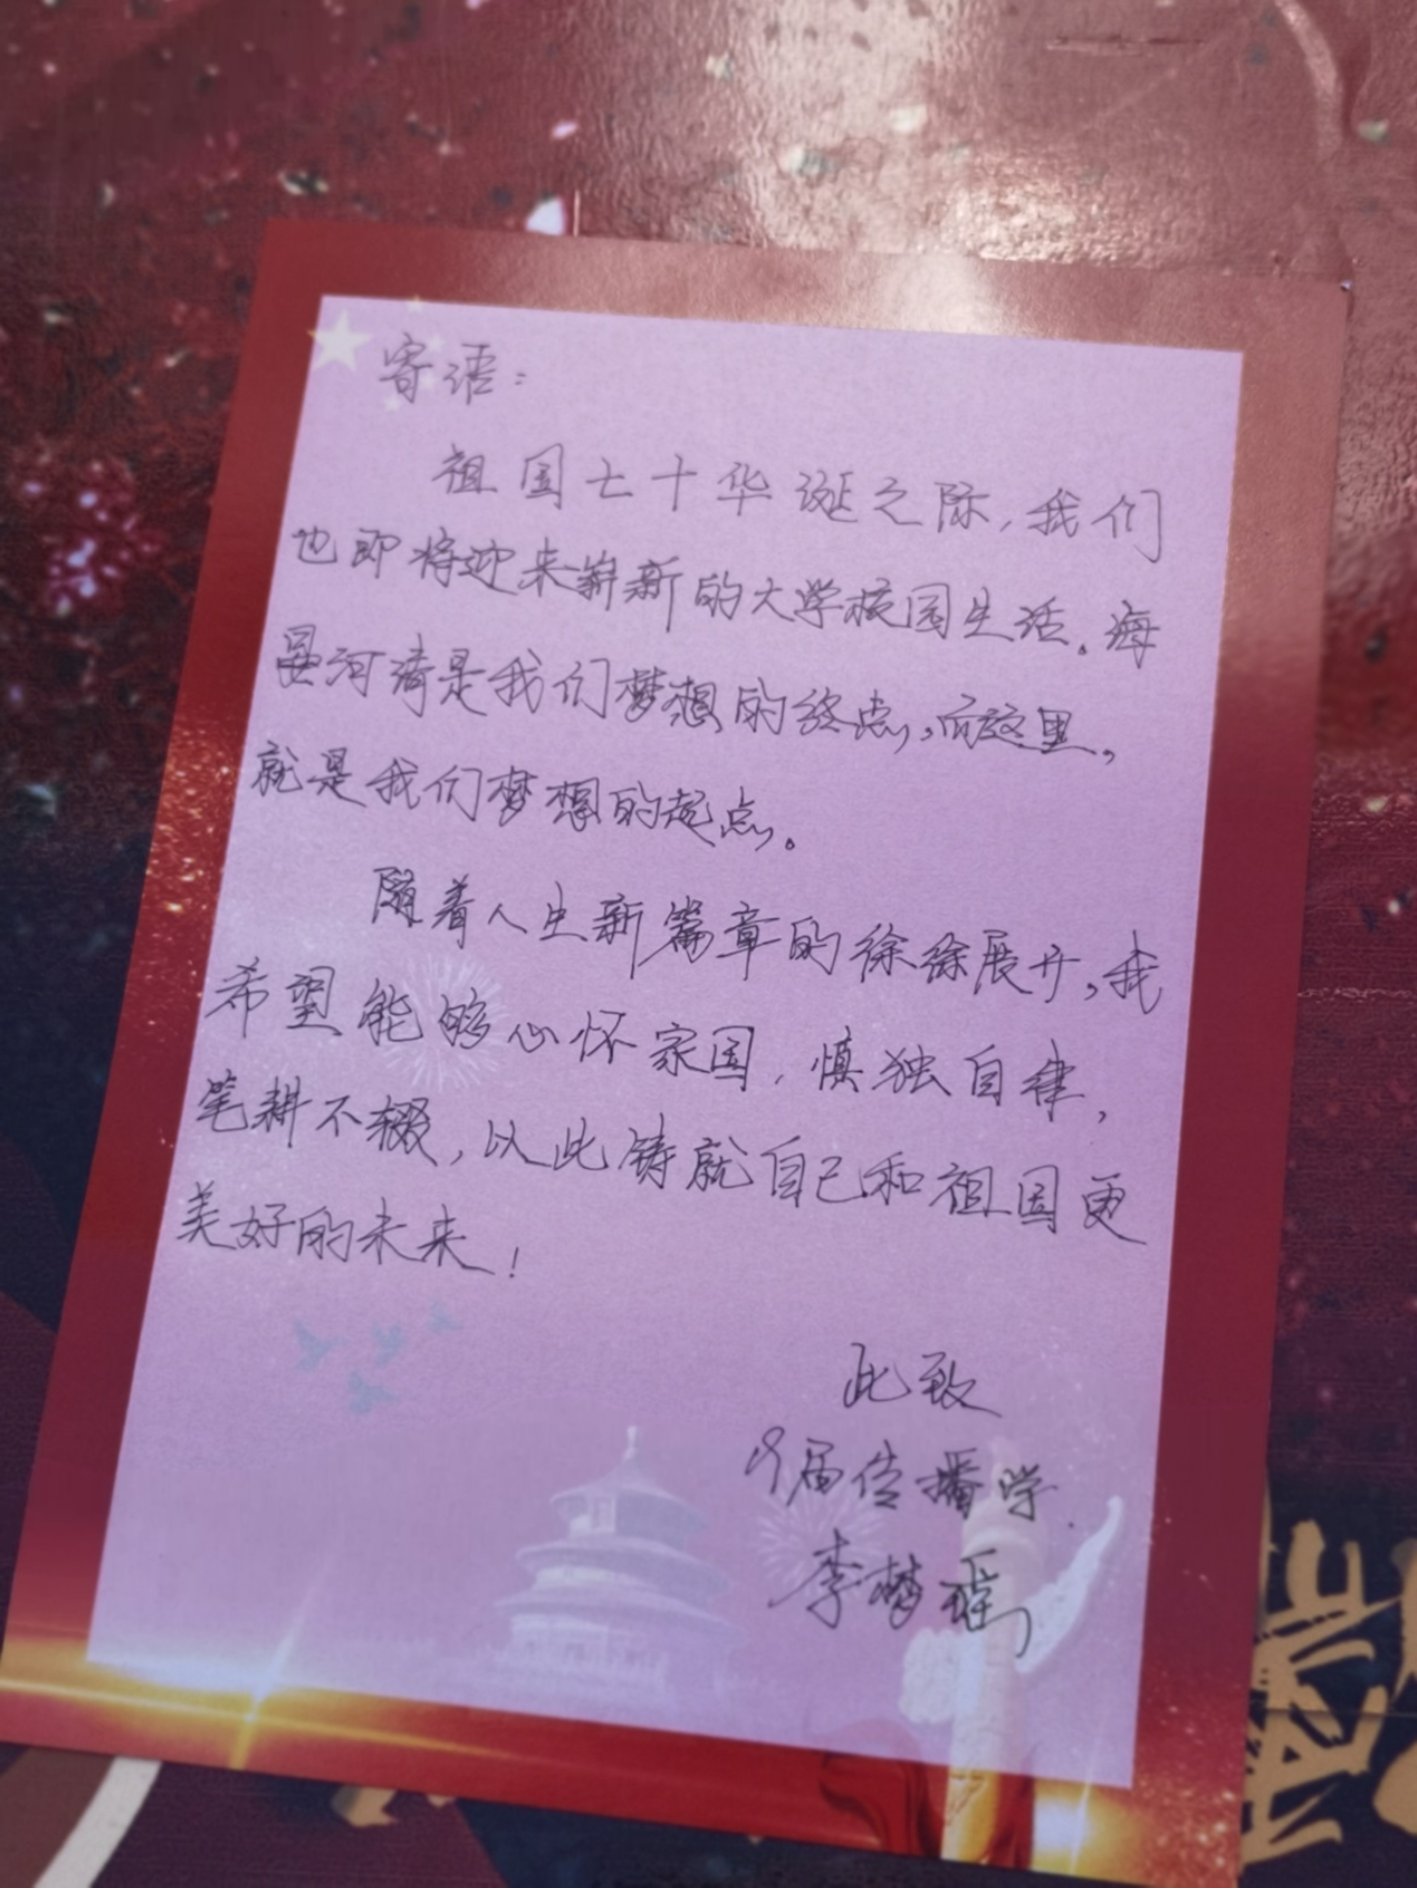 寄语：
祖国七十华诞之际，我们
也即将迎来崭新的大学校园生活。海
晏河清是我们梦想的终点，而这里，
就是我们梦想的起点。
随着人生新篇章的徐徐展开，我
希望能够心怀家国，慎独自律，
笔耕不辍，以此铸就自己和祖国更
美好的未来！
此致
19届传播学
李梦瑶